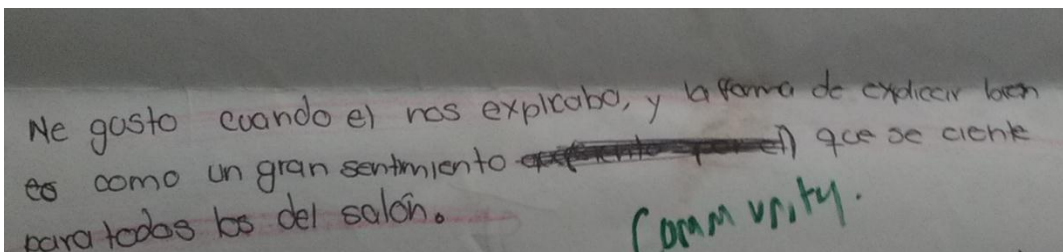 Me gosto cuando el nos explicaba, y la forma de explicar bien
es como un gran sentimiento que se ciente
para todos los del salón.
Community.